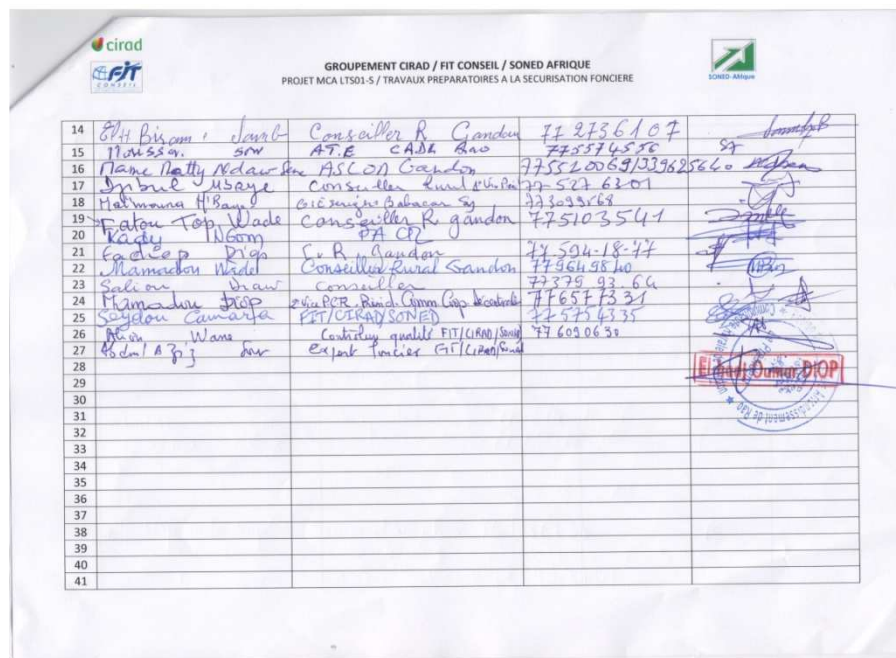 cirad
FIT
CONSEIL
GROUPEMENT CIRAD / FIT CONSEIL / SONED AFRIQUE
PROJET MCA LTS01-S / TRAVAUX PREPARATOIRES A LA SECURISATION FONCIERE
SONED-Afrique
14 El H Conseiller R Gandon 77 2736107
15 Moussa Sow AT.E CADL Rao 775574556
16 Mame Ndaw ASCOM Gandon
17 Djibril Mbaye Conseiller Rural 77 527 6301
18 Maïmouna M'Baye GIE Serigne Babacar Sy 773099568
19 Fatou Top Wade Conseiller R gandon 775103541
20 Kady NGom PA CR
21 Diop C.R. Gandon 77 594-18-77
22 Mamadou Wade Conseiller Rural Gandon 779649840
23 Saliou Diaw Conseiller 77379 93.64
24 Mamadou Diop 776577331
25 Seydou Camara FIT/CIRAD/SONED 775754335
26 Wane Controleur qualité FIT/CIRAD/Soned 776090630
27 Sow Expert foncier FIT/CIRAD/Soned
28
El Hadj Oumar DIOP
29
30
31
32
33
34
35
36
37
38
39
40
41